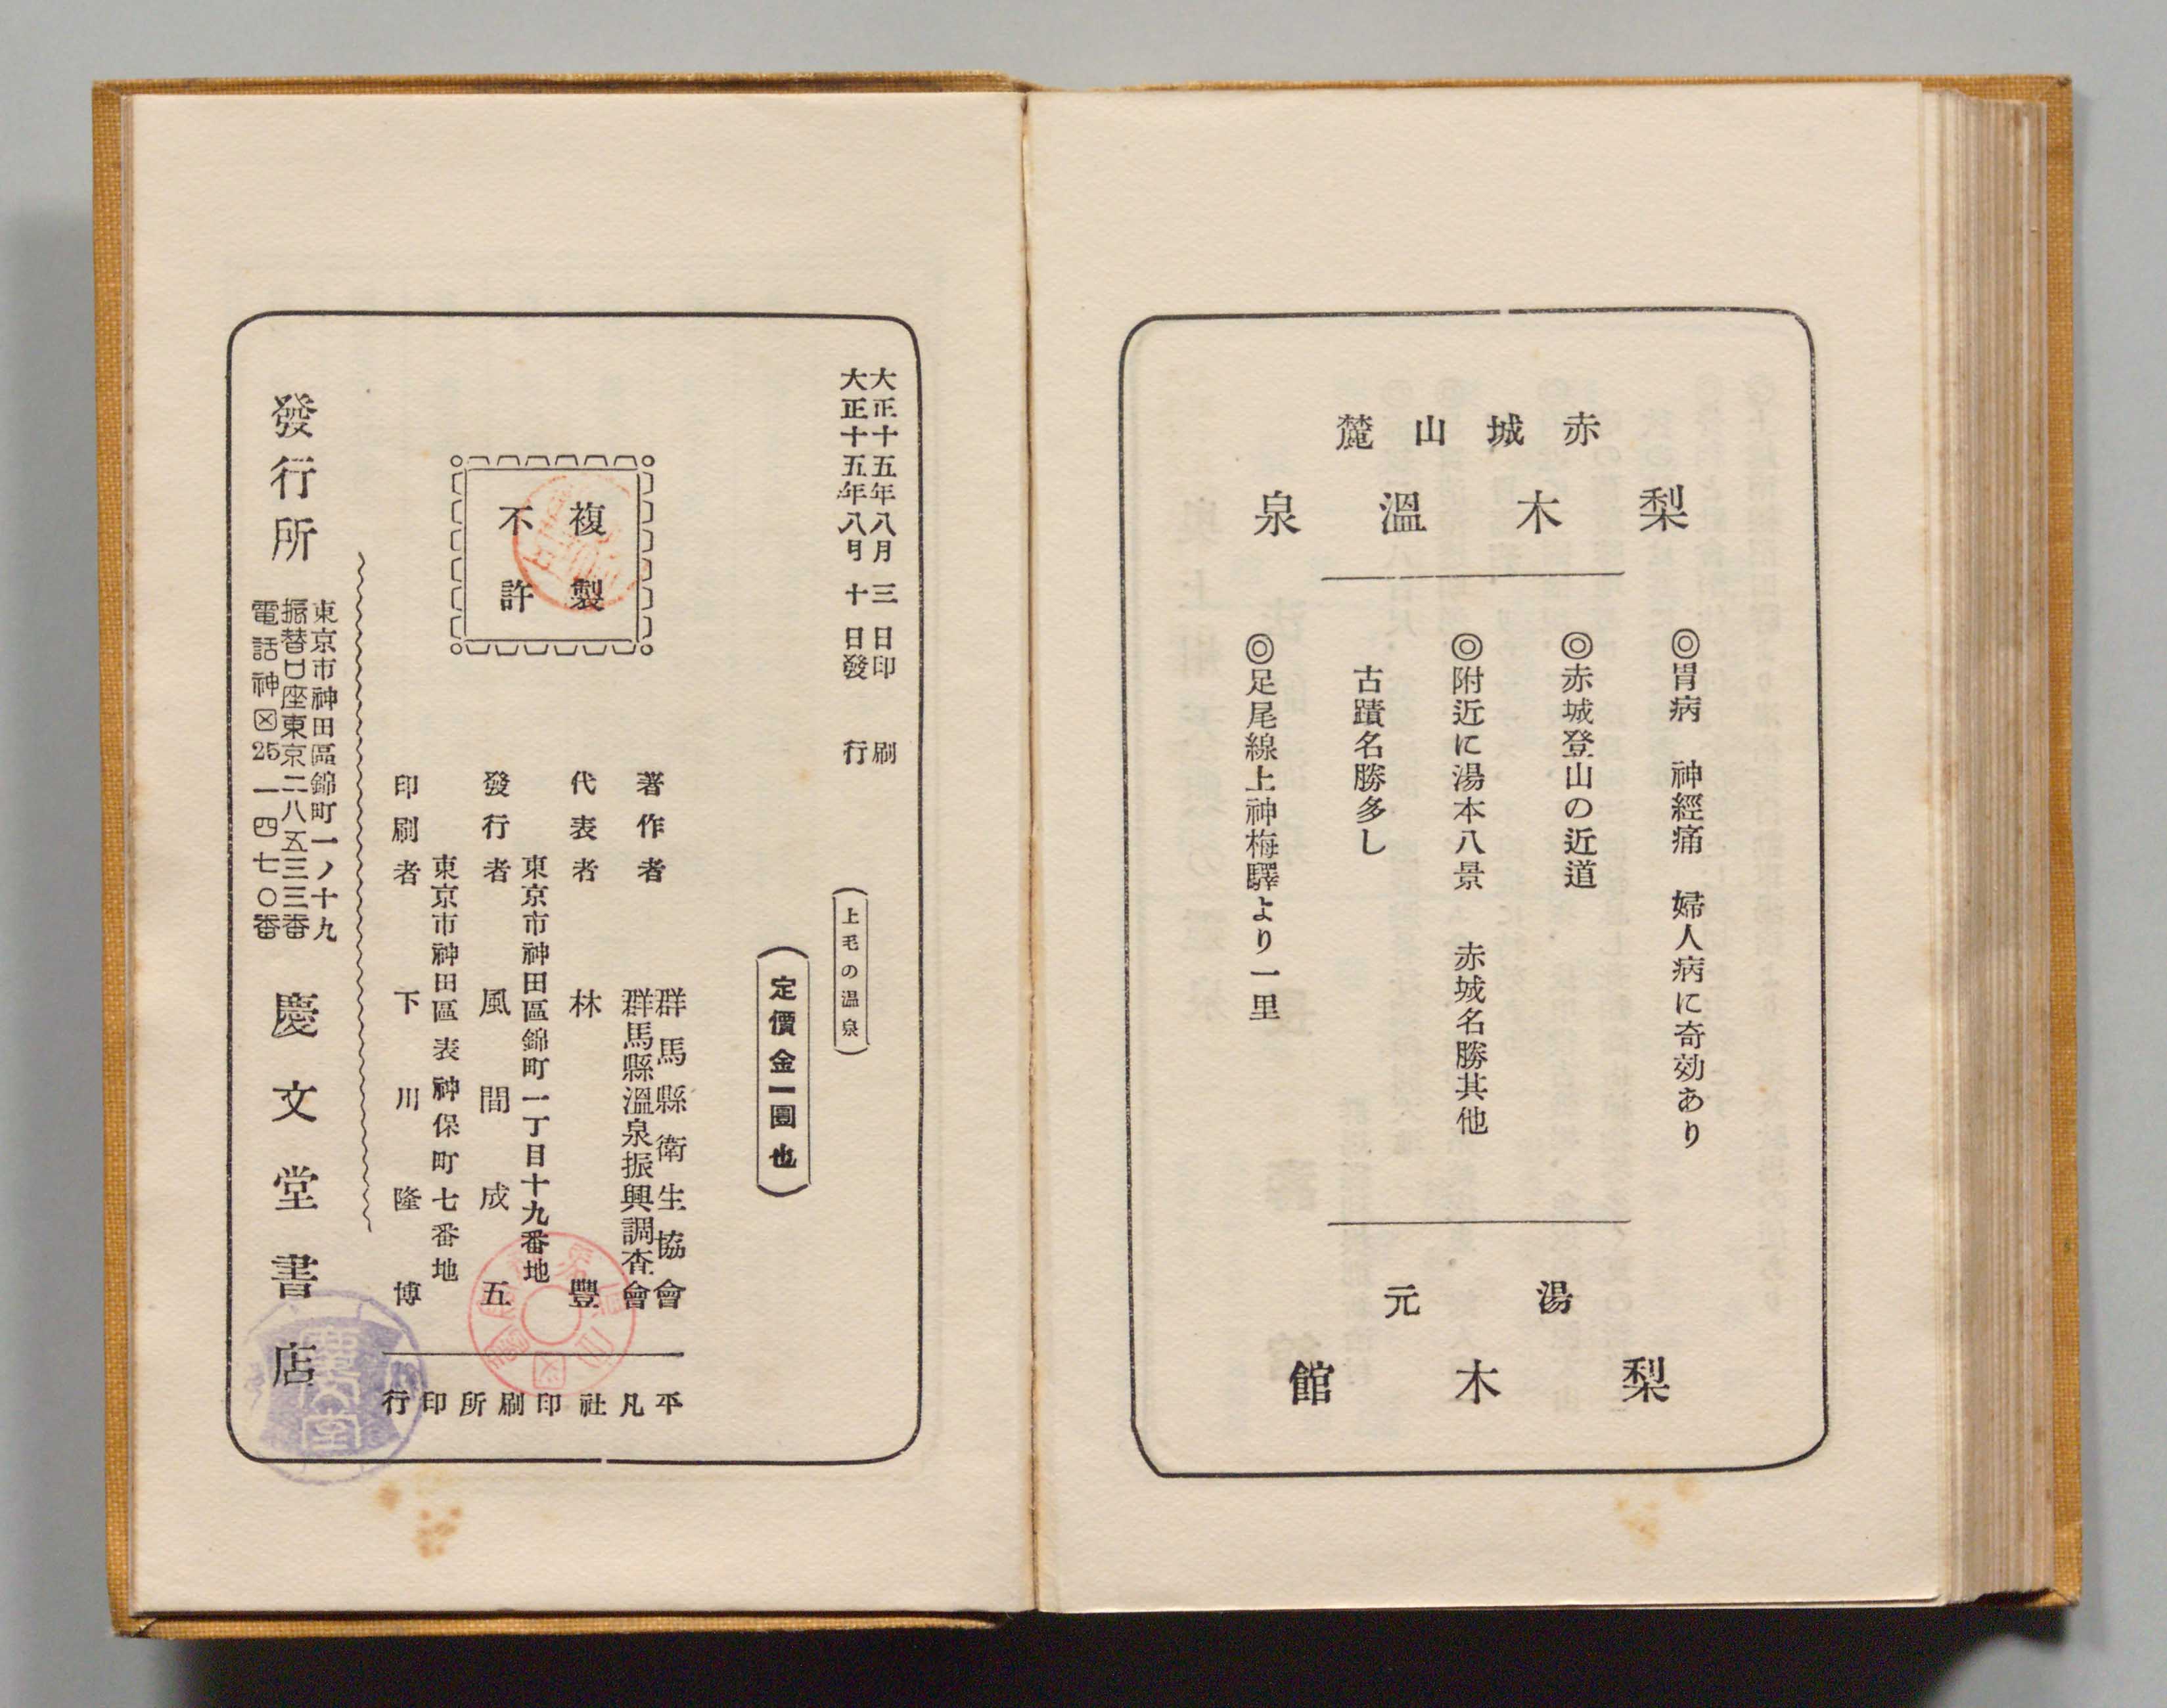 赤城山麓
梨木溫泉
◎胃病　神經痛　婦人病に奇効あり
◎赤城登山の近道
◎附近に湯本八景　赤城名勝其他
古蹟名勝多し
◎足尾線上神梅驛より一里
湯元
梨木館
大正十五年八月三日印刷
大正十五年八月十日發行
（上毛の温泉）
（定價金一圓也）
複製
不許
著作者　群馬縣衛生協會
群馬縣溫泉振興調査會
代表者　林豐
東京市神田區錦町一丁目十九番地
發行者　風間成五
東京市神田區表神保町七番地
印刷者　下川隆博
平凡社印刷所印行
發行所
東京市神田區錦町一ノ十九
振替口座東京二八五三三番
電話神田25一四七〇番
慶文堂書店